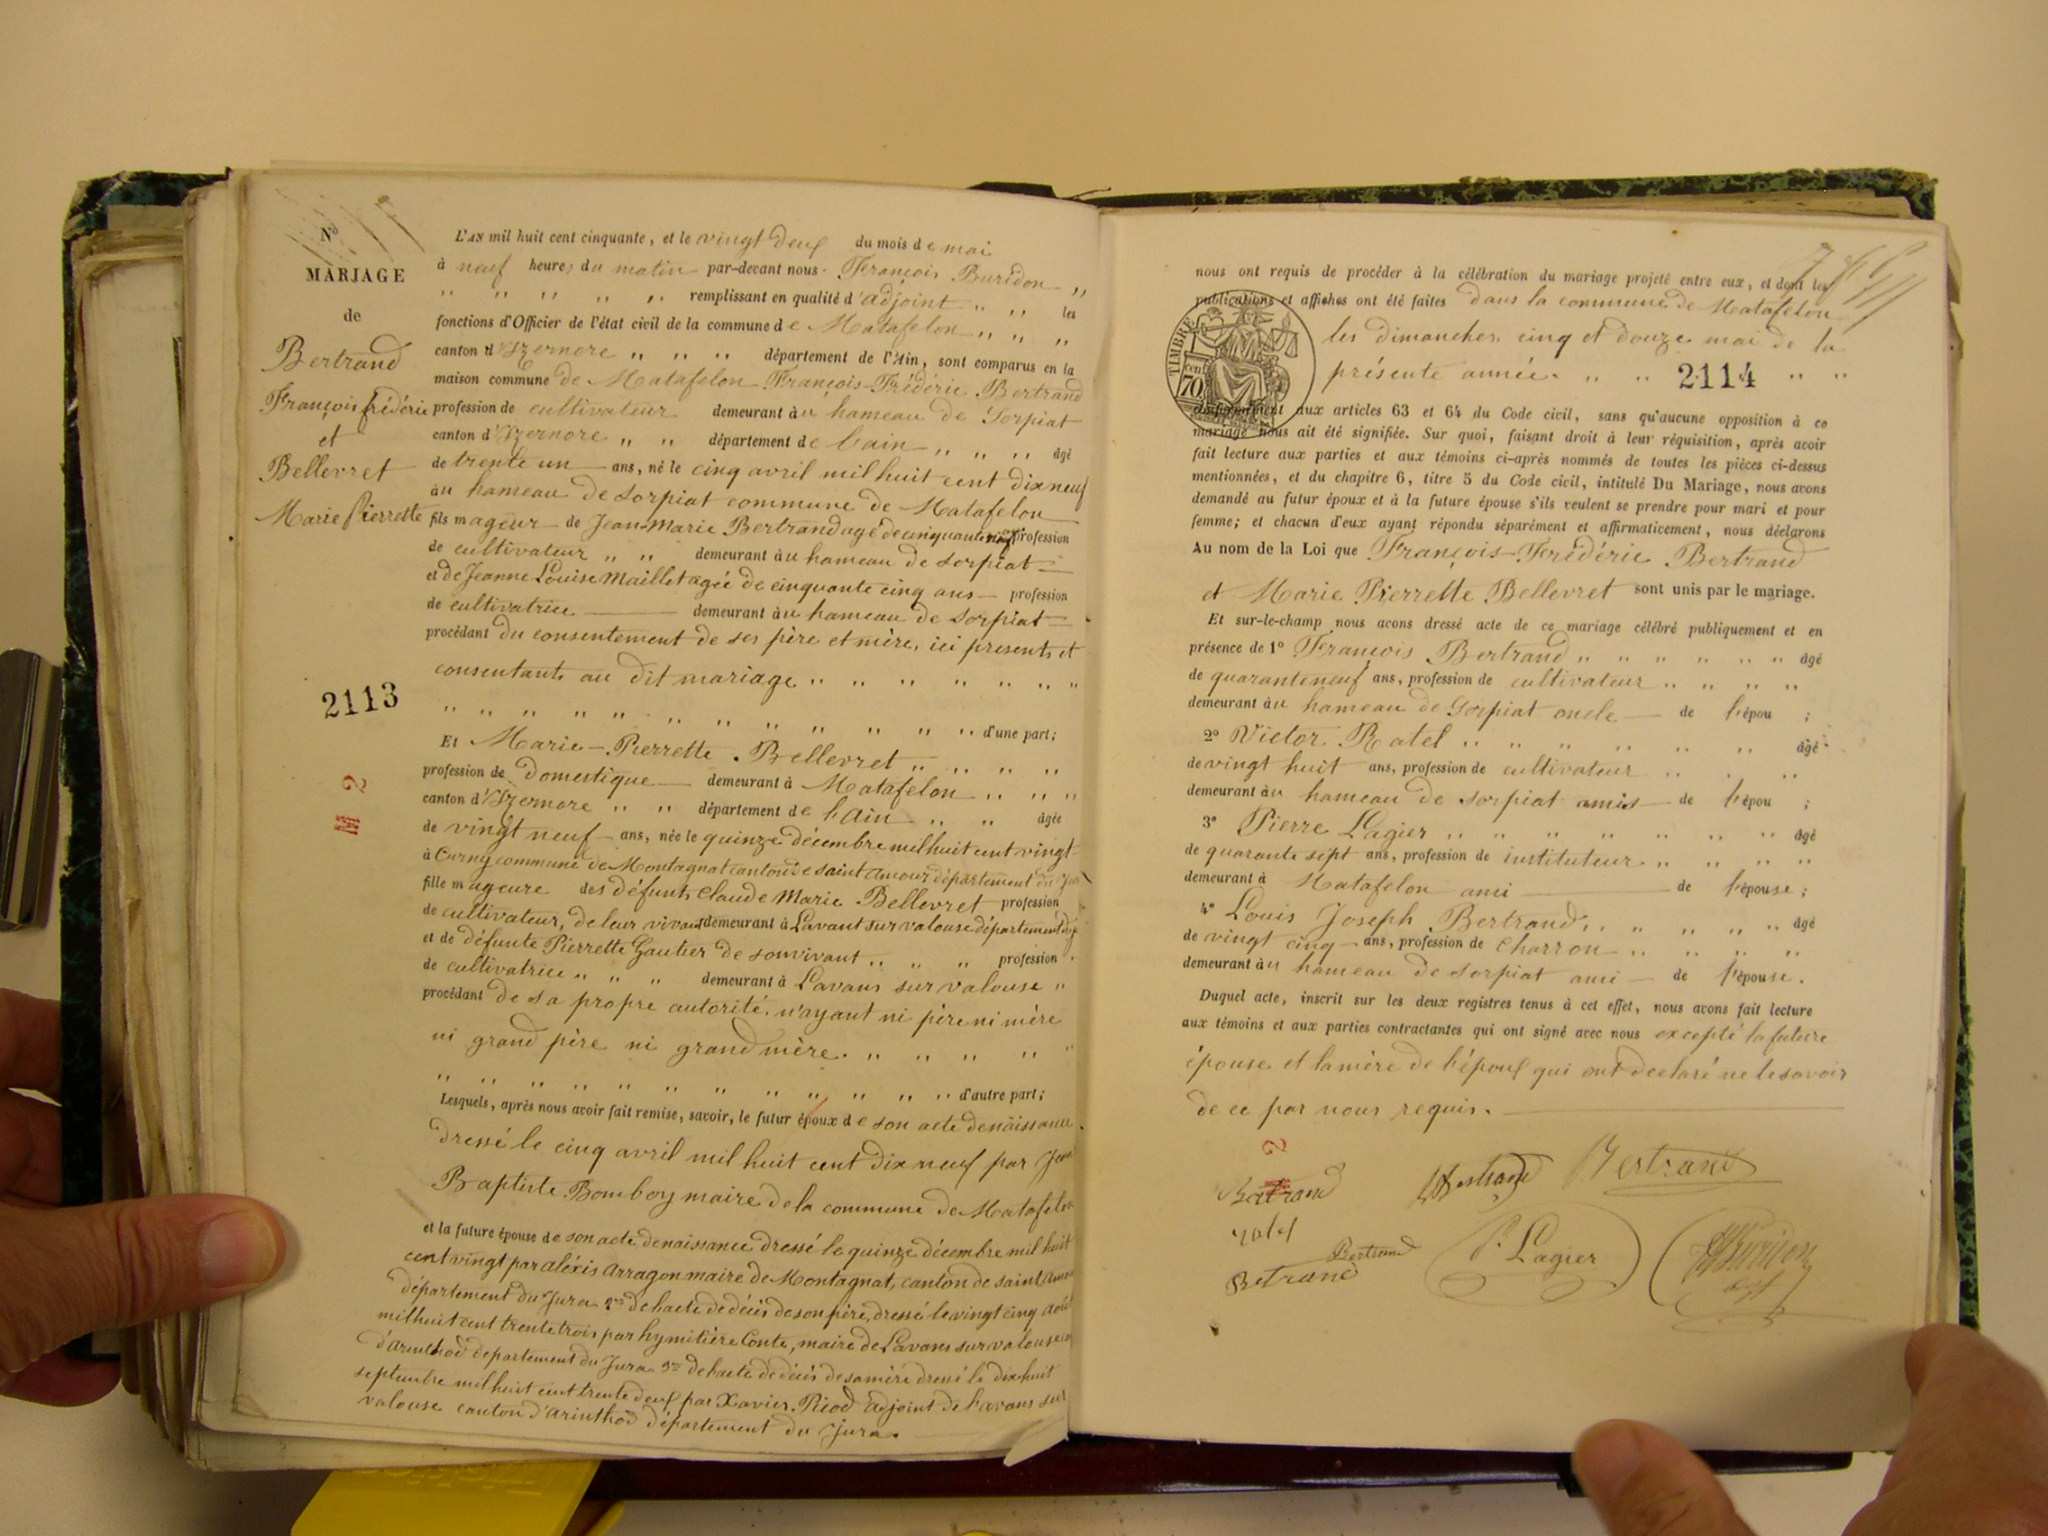 N°
MARIAGE
de
Bertrand
François frédéric
et
Bellevret
Marie Pierrette
2113
M 2
L'AN mil huit cent cinquante, et le vingt deux du mois de mai
à neuf heures du matin par-devant nous François Buridon „
„ „ „ „ „ remplissant en qualité d'adjoint „ „ les
fonctions d'Officier de l'état civil de la commune de Matafelon „ „ „
canton d'Izernore „ „ „ département de l'Ain, sont comparus en la
maison commune de Matafelon François-Frédéric Bertrand
profession de cultivateur demeurant àu hameau de Sorpiat
canton d'Izernore „ „ département de l'ain „ „ „ âgé
de trente un ans, né le cinq avril mil huit cent dix neuf
àu hameau de Sorpiat commune de Matafelon
fils mageur de Jean-Marie Bertrand agé de cinquante profession
de cultivateur „ „ demeurant àu hameau de Sorpiat
et de Jeanne Louise Maillet agée de cinquante cinq ans profession
de cultivatrice demeurant àu hameau de Sorpiat
procédant du consentement de ses père et mère, ici présents et
consentants au dit mariage „ „ „ „ „ „
„ „ „ „ „ „ „ „ „ „ „ „ d'une part;
Et Marie-Pierrette Bellevret „ „ „ „
profession de domestique demeurant à Matafelon „ „ „
canton d'Izernore „ „ département de l'Ain „ „ âgée
de vingt neuf ans, née le quinze décembre mil huit cent vingt
à commune de Montagnat canton de saint Amour département du Jura
fille mageure des défunts Claude Marie Bellevret profession
de cultivateur, de leur vivant demeurant à Lavant sur valouse département du
et de défunte Pierrette Gautier de son vivant „ „ „ profession
de cultivatrice „ „ „ demeurant à Lavans sur valouse „
procédant de sa propre autorité, n'ayant ni père ni mère
ni grand père ni grand mère. „ „ „ „ „
„ „ „ „ „ „ „ „ „ „ „ „ d'autre part;
Lesquels, après nous avoir fait remise, savoir, le futur époux de son acte de naissance
dressé le cinq avril mil huit cent dix neuf par Jean
Baptiste Bomboy maire de la commune de Matafelon
et la future épouse de son acte de naissance dressé le quinze décembre mil huit
cent vingt par aléxis Arragon maire de Montagnat, canton de saint Amour
département du Jura 2° de l'acte de décès de son père, dressé le vingt cinq août
mil huit cent trente trois par hymitière Conte, maire de Lavans sur valouse
d'Arinthod département du Jura 3° de l'acte de décès de sa mère dressé le dix huit
septembre mil huit cent trente deux par Xavier Piod adjoint de Lavans sur
valouse canton d'Arinthod département du Jura.
nous ont requis de procéder à la célébration du mariage projeté entre eux, et dont les
publications et affiches ont été faites dans la commune de Matafelon
les dimanches cinq et douze mai de la
présente année. „ „ 2114 „ „
TIMBRE
70 cen
conformément aux articles 63 et 64 du Code civil, sans qu'aucune opposition à ce
mariage nous ait été signifiée. Sur quoi, faisant droit à leur réquisition, après avoir
fait lecture aux parties et aux témoins ci-après nommés de toutes les pièces ci-dessus
mentionnées, et du chapitre 6, titre 5 du Code civil, intitulé Du Mariage, nous avons
demandé au futur époux et à la future épouse s'ils veulent se prendre pour mari et pour
femme; et chacun d'eux ayant répondu séparément et affirmativement, nous déclarons
Au nom de la Loi que François-Frédéric Bertrand
et Marie Pierrette Bellevret sont unis par le mariage.
Et sur-le-champ nous avons dressé acte de ce mariage célébré publiquement et en
présence de 1° François Bertrand „ „ „ „ „ „ âgé
de quarante neuf ans, profession de cultivateur „ „ „ „
demeurant àu hameau de Sorpiat oncle de l'épou ;
2° Victor Ratel „ „ „ „ „ „ âgé
de vingt huit ans, profession de cultivateur „ „ „
demeurant àu hameau de Sorpiat amis de l'épou ;
3° Pierre Lagier „ „ „ „ „ „ „ âgé
de quarante sept ans, profession de instituteur „ „ „ „
demeurant à Matafelon ami de l'épouse;
4° Louis Joseph Bertrand „ „ „ „ „ âgé
de vingt cinq ans, profession de charron „ „ „ „
demeurant àu hameau de Sorpiat ami de l'épouse.
Duquel acte, inscrit sur les deux registres tenus à cet effet, nous avons fait lecture
aux témoins et aux parties contractantes qui ont signé avec nous excepté la future
épouse et la mère de l'époux qui ont déclaré ne le savoir
de ce par nous requis.
M 2
Bertrand Bertrand Bertrand
Bertrand P. Lagier Buridon
Bertrand adj